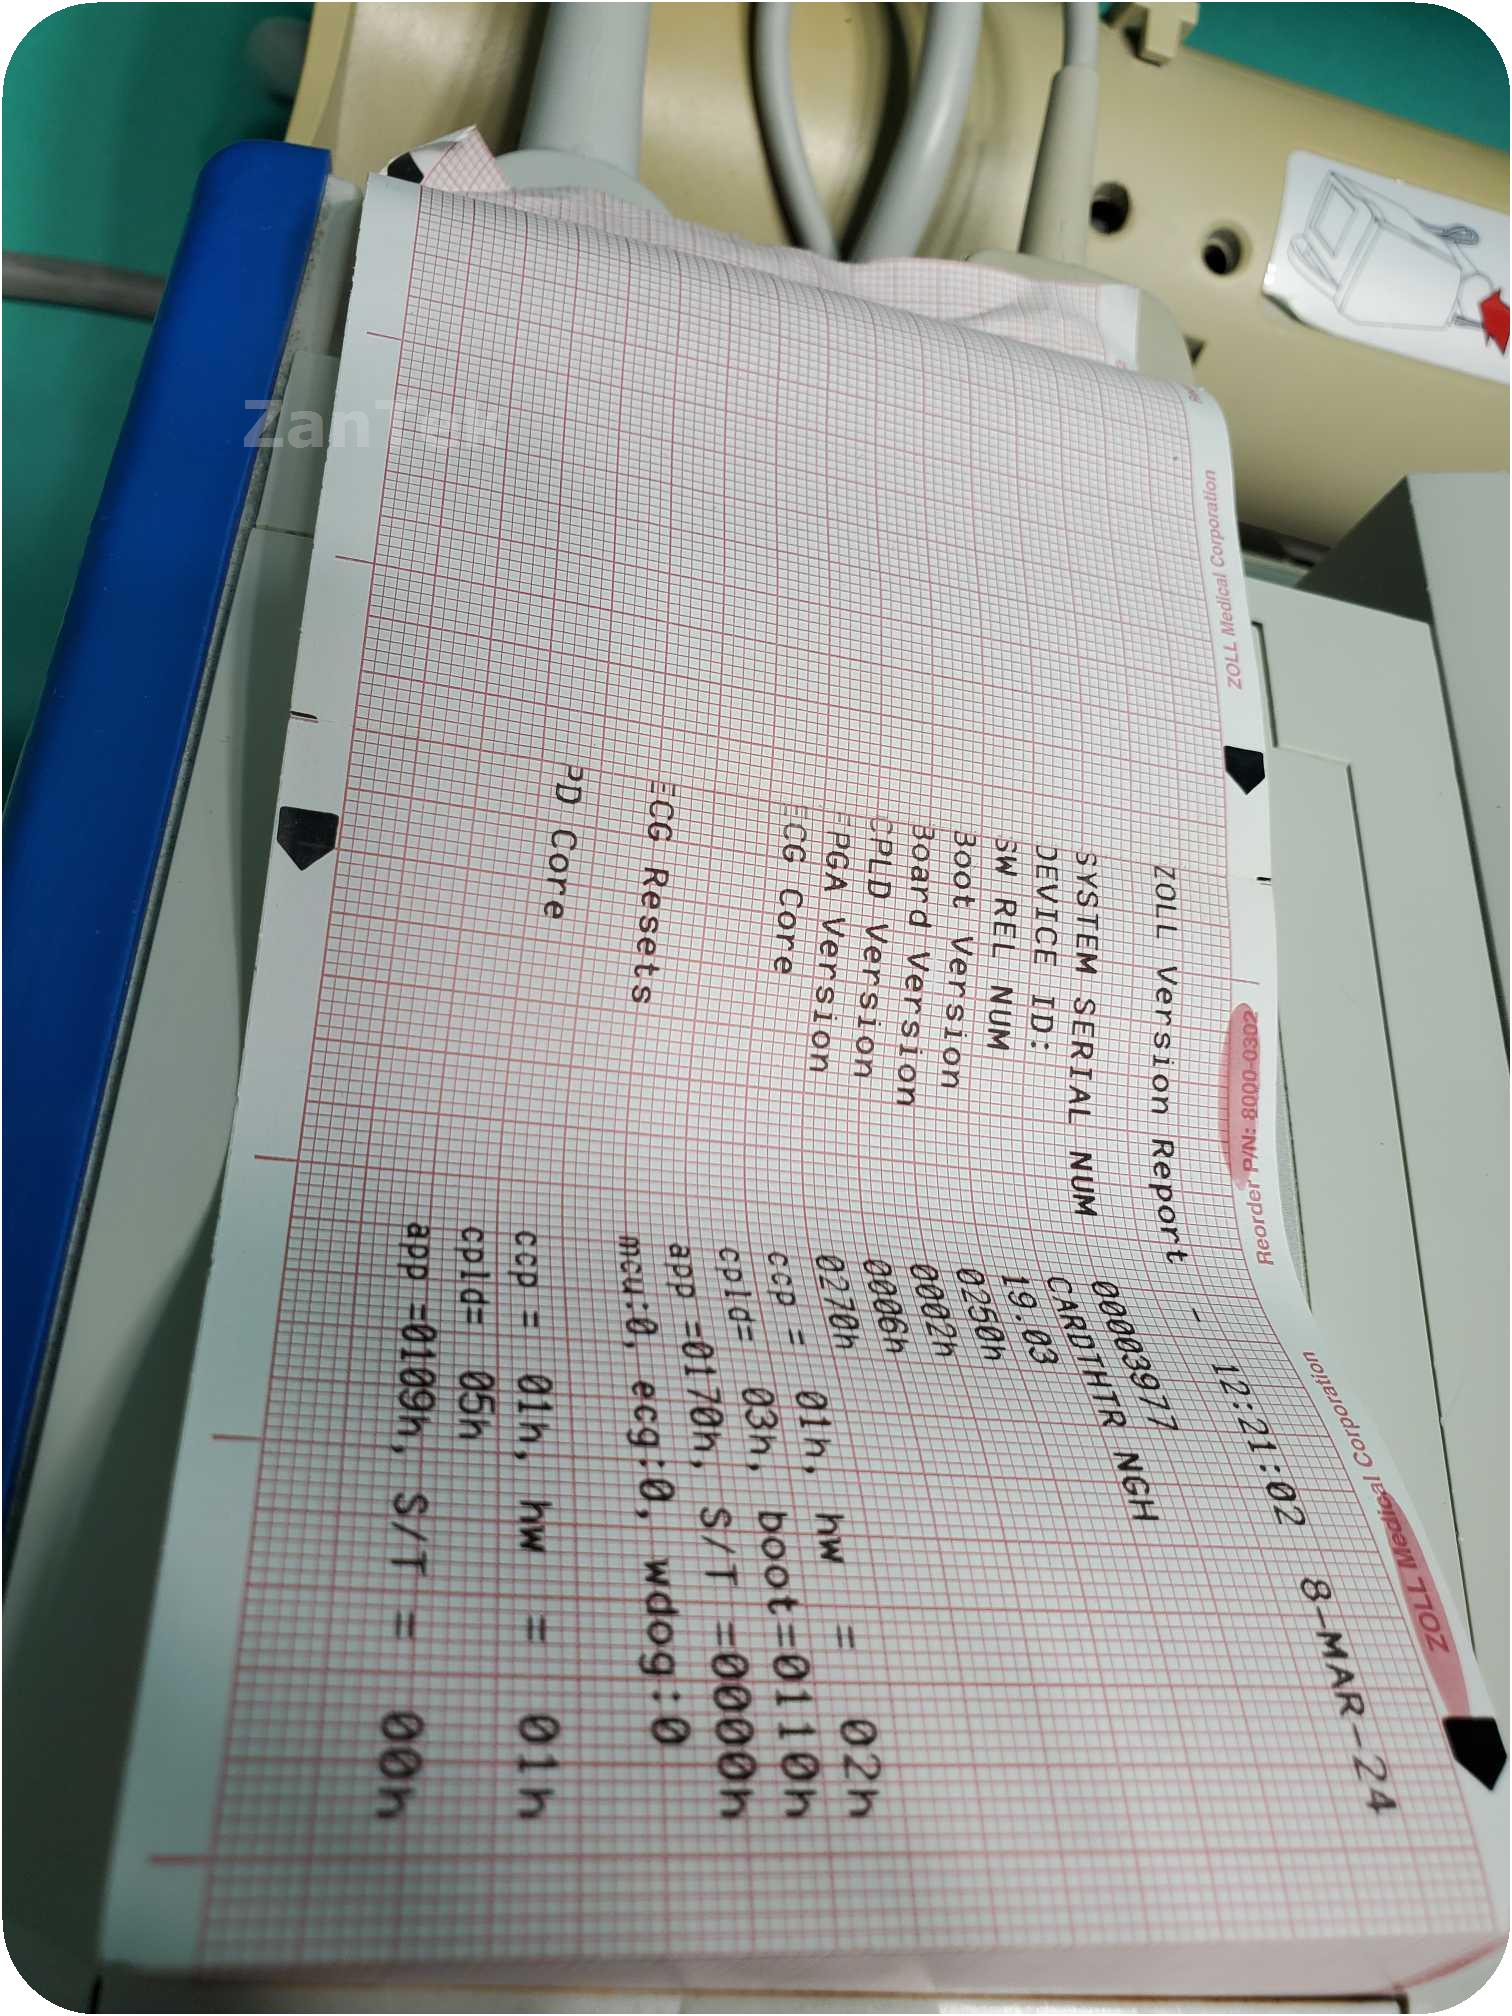 ZOLL Version Report - 12:21:02 8-MAR-24
SYSTEM SERIAL NUM 00003977
DEVICE ID: CARDTHTR NGH
SW REL NUM 19.03
Boot Version 0250h
Board Version 0002h
CPLD Version 0006h
FPGA Version 0270h
ECG Core ccp = 01h, hw = 02h
cpld= 03h, boot=0110h
app =0170h, S/T =0000h
ECG Resets mcu:0, ecg:0, wdog:0
PD Core ccp = 01h, hw = 01h
cpld= 05h
app =0109h, S/T = 00h
ZOLL Medical Corporation
Reorder P/N: 8000-0302
ZOLL Medical Corporation